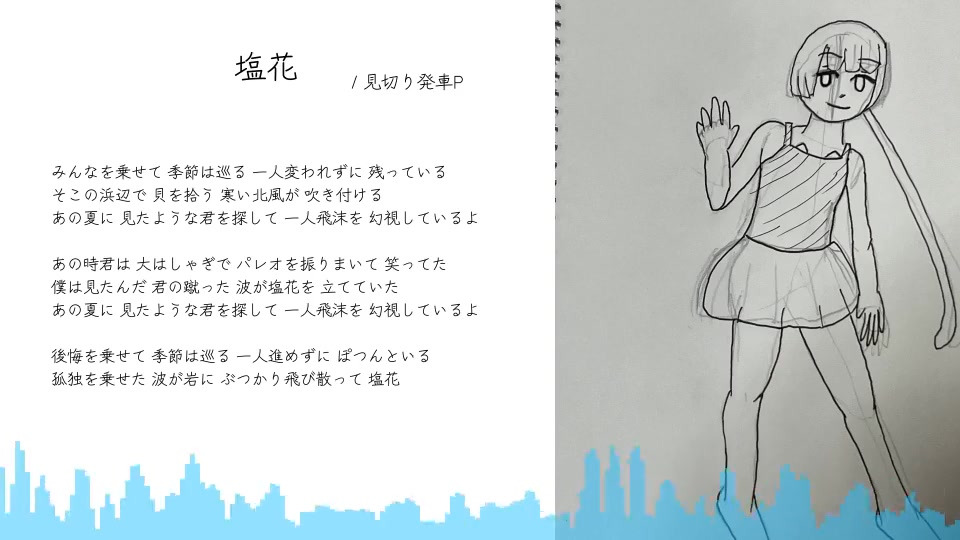 塩花
/ 見切り発車P
みんなを乗せて 季節は巡る 一人変われずに 残っている
そこの浜辺で 貝を拾う 寒い北風が 吹き付ける
あの夏に 見たような君を探して 一人飛沫を 幻視しているよ
あの時君は 大はしゃぎで パレオを振りまいて 笑ってた
僕は見たんだ 君の蹴った 波が塩花を 立てていた
あの夏に 見たような君を探して 一人飛沫を 幻視しているよ
後悔を乗せて 季節は巡る 一人進めずに ぽつんといる
孤独を乗せた 波が岩に ぶつかり飛び散って 塩花